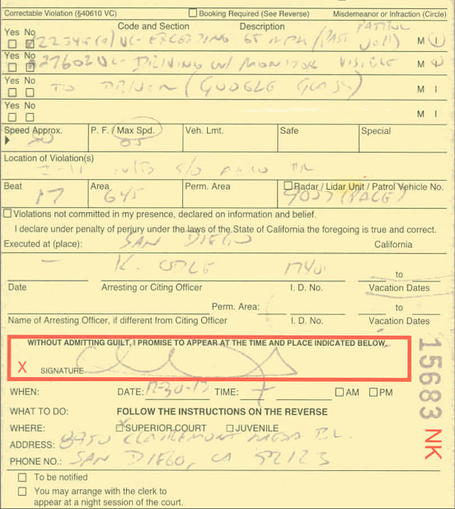 Correctable Violation (§40610 VC) Booking Required (See Reverse) Misdemeanor or Infraction (Circle)
Yes No Code and Section Description PATROL
22349(a) VC - EXCEEDING 65 MPH (PACE M I
Yes No
27602 VC - DRIVING W/ MONITOR VISIBLE M I
Yes No
TO DRIVER (GOOGLE GLASS) M I
Yes No
M I
Speed Approx. P. F. / Max Spd. Veh. Lmt. Safe Special
80 65
Location of Violation(s)
I-15 S/O AERO DR
Beat Area Perm. Area Radar / Lidar Unit / Patrol Vehicle No.
17 645 (PACE)
Violations not committed in my presence, declared on information and belief.
I declare under penalty of perjury under the laws of the State of California the foregoing is true and correct.
Executed at (place): SAN DIEGO California
K. ODLE to
Date Arresting or Citing Officer I. D. No. Vacation Dates
Perm. Area: to
Name of Arresting Officer, if different from Citing Officer I. D. No. Vacation Dates
WITHOUT ADMITTING GUILT, I PROMISE TO APPEAR AT THE TIME AND PLACE INDICATED BELOW.
X SIGNATURE
WHEN: DATE: TIME: AM PM
WHAT TO DO: FOLLOW THE INSTRUCTIONS ON THE REVERSE
WHERE: SUPERIOR COURT JUVENILE
ADDRESS: 8950 CLAIREMONT MESA BL.
PHONE NO.: SAN DIEGO, CA 92123
To be notified
You may arrange with the clerk to
appear at a night session of the court.
15683 NK